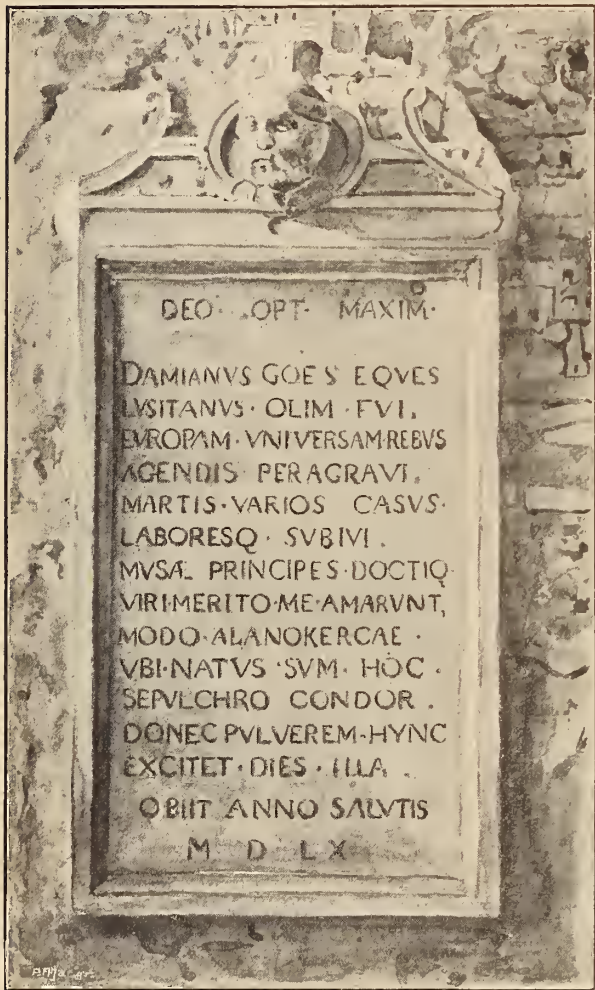 DEO · OPT · MAXIM ·
DAMIANVS GOES EQVES
LVSITANVS · OLIM · FVI .
EVROPAM · VNIVERSAM · REBVS
AGENDIS PERAGRAVI .
MARTIS · VARIOS CASVS ·
LABORESQ · SVBIVI .
MVSÆ PRINCIPES · DOCTIQ
VIRI · MERITO · ME · AMARVNT,
MODO · ALANOKERCAE ·
VBI · NATVS · SVM · HOC ·
SEPVLCHRO CONDOR .
DONEC PVLVEREM · HVNC
EXCITET · DIES · ILLA .
OBIIT ANNO SALVTIS
M D LX